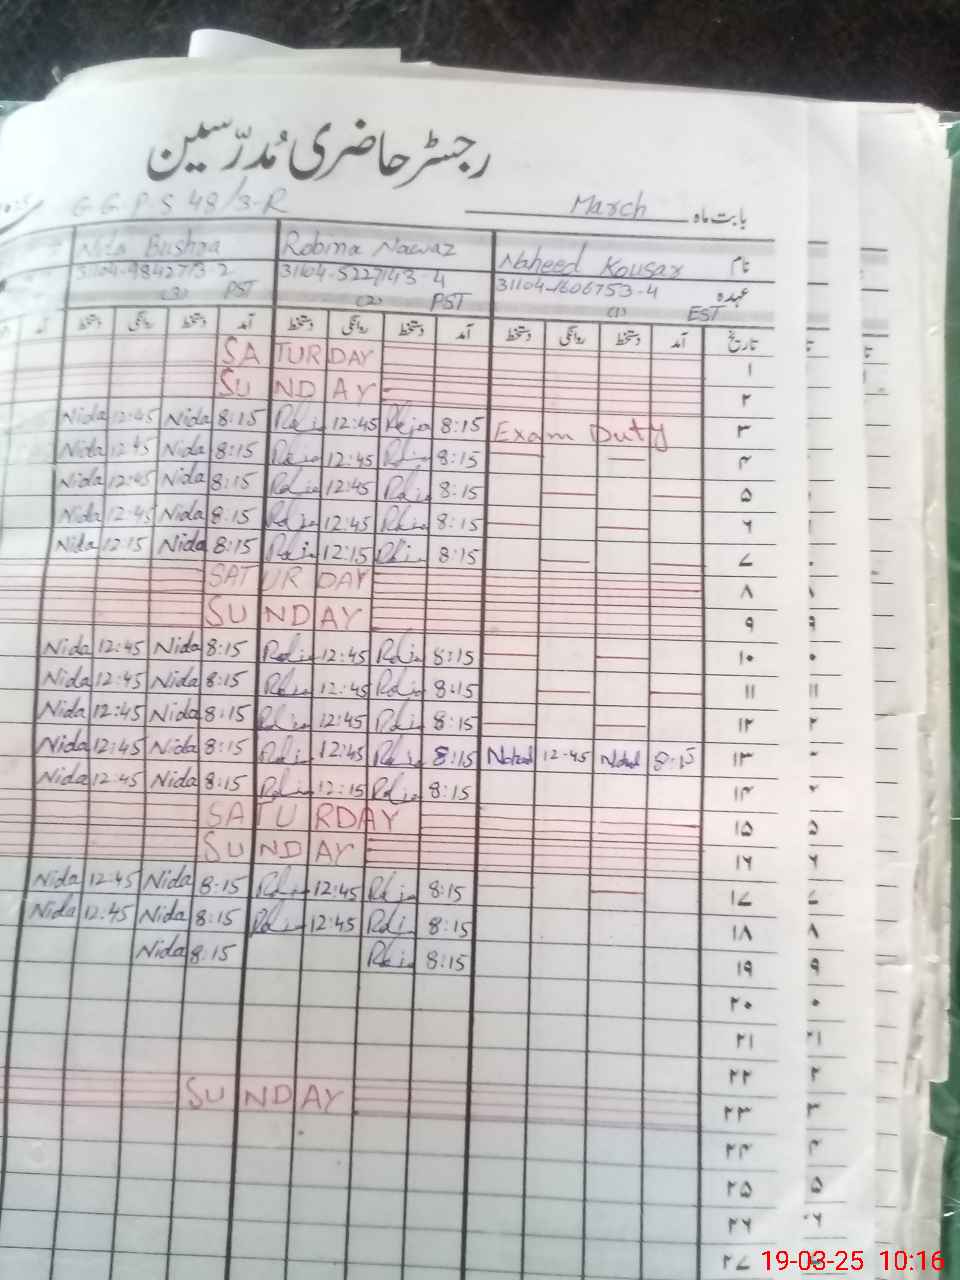 رجسٹر حاضری مُدرّسین
G G P S 48/3-R March بابت ماہ
Nida Bushra Robina Nawaz Naheed Kousar نام
31104-9842713-2 31104-5227143-4 31104-1606753-4 عہدہ
(3) PST (2) PST (1) EST
آمد دستخط روانگی دستخط آمد دستخط روانگی دستخط آمد دستخط روانگی دستخط تاریخ
SATURDAY ۱
SUNDAY ۲
Nida 12:45 Nida 8:15 12:45 8:15 Exam Duty ۳
Nida 12:45 Nida 8:15 12:45 8:15 ۴
Nida 12:45 Nida 8:15 12:45 8:15 ۵
Nida 12:45 Nida 8:15 12:45 8:15 ۶
Nida 12:15 Nida 8:15 12:15 8:15 ۷
SATURDAY ۸
SUNDAY ۹
Nida 12:45 Nida 8:15 12:45 8:15 ۱۰
Nida 12:45 Nida 8:15 12:45 8:15 ۱۱
Nida 12:45 Nida 8:15 12:45 8:15 ۱۲
Nida 12:45 Nida 8:15 12:45 8:15 12-45 8:15 ۱۳
Nida 12:45 Nida 8:15 12:15 8:15 ۱۴
SATURDAY ۱۵
SUNDAY ۱۶
Nida 12:45 Nida 8:15 12:45 8:15 ۱۷
Nida 12:45 Nida 8:15 12:45 8:15 ۱۸
Nida 8:15 8:15 ۱۹
۲۰
۲۱
۲۲
SUNDAY ۲۳
۲۴
۲۵
۲۶
۲۷
19-03-25 10:16